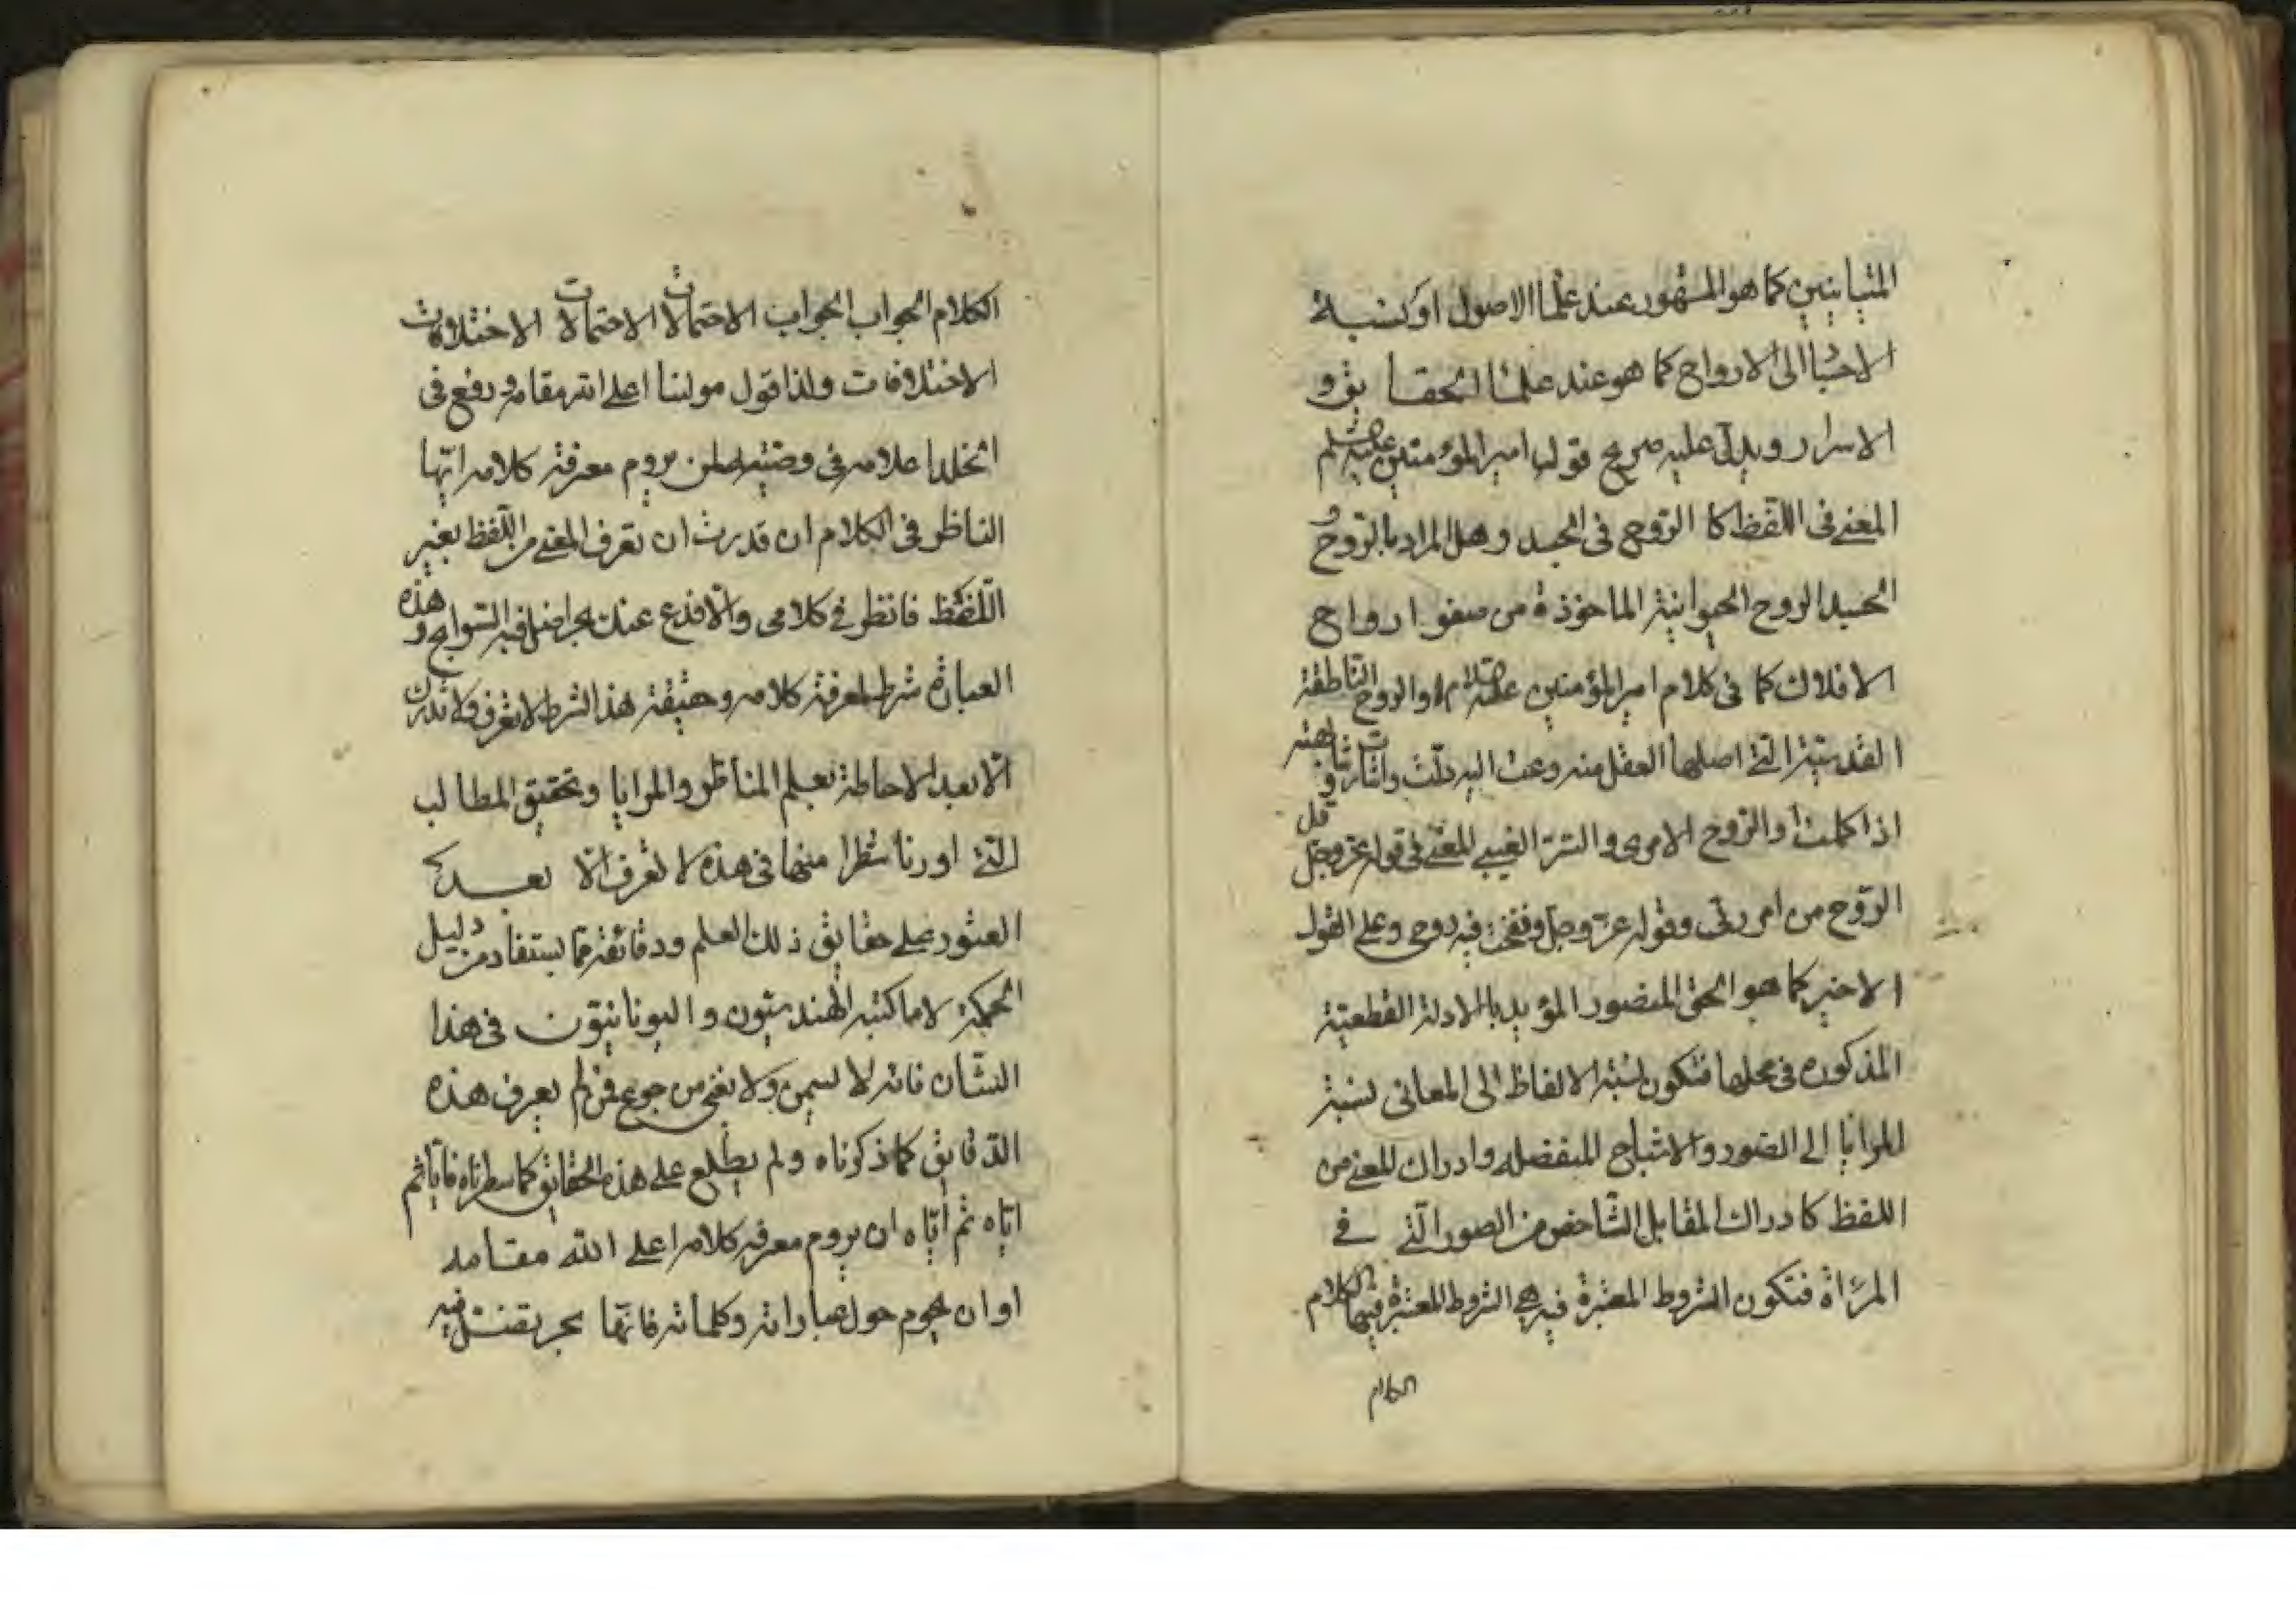 المتباينين كما هو المشهور عند علما الاصول او كنسبة
الاجساد الى الارواح كما هو عند علما الحقايق و
الاسرار ويدل عليه صريح قول امير المؤمنين عليه السلم
المعنى فى اللفظ كا الروح فى الجسد وهل المراد بالروح و
الجسد الروح الحيوانية الماخوذة من صفو ارواح
الافلاك كما فى كلام امير المؤمنين عليه السلام او الروح الناطقة
القدسية التى اصلها العقل منه وعت اليه دلت واشارت و شابهته
اذا كملت او الروح الامرى و السر الغيبى المعنى فى قوله عز وجل قل
الروح من امر ربى وقوله عز وجل ونفخت فيه روحى وعلى القول
الاخير كما هو الحق المنصور المؤيد بالادلة القطعية
المذكوره فى محلها فتكون نسبة الالفاظ الى المعانى نسبة
المرايا الى الصور والاشباح المنفصله وادراك المعنى من
اللفظ كادراك المقابل الشاخص من الصور التى فى
المرآة فتكون الشروط المعتبرة فيه هى الشروط المعتبرة فيها الكلام
الكلام
الكلام الجواب الجواب الاحتمالات الاحتمالات الاختلافات
الاختلافات ولذا قول مولنا اعلى الله مقامه ورفع فى
الخلد اعلامه فى وصيته لمن يروم معرفة كلامه ايها
الناظر فى الكلام ان قدرت ان تعرف المعنى من اللفظ بغير
اللفظ فانظر فى كلامى والا فدع عنك بحرا ضل فيه السوابح و هذه
العبارة شرط لمعرفة كلامه وحقيقة هذا الشرط لا تعرف ولا تدرك
الا بعد الاحاطة بعلم المناظر والمرايا وتحقيق المطالب
التى اورنا شطرا منها فى هذه لا تعرف الا بعد
العثور على حقايق ذلك العلم ودقائقه مما يستفاد من دليل
الحكمة لا ما كتبه المهندسيون و اليونانيون فى هذا
الشان فانه لا يسمن ولا يغنى من جوع فمن لم يعرف هذه
الدقايق كما ذكرناه ولم يطلع على هذه الحقايق كما سطرناه فاياه ثم
اياه ثم اياه ان يروم معرفة كلامه اعلى الله مقامه
او ان يحوم حول عباراته وكلماته فانها بحر